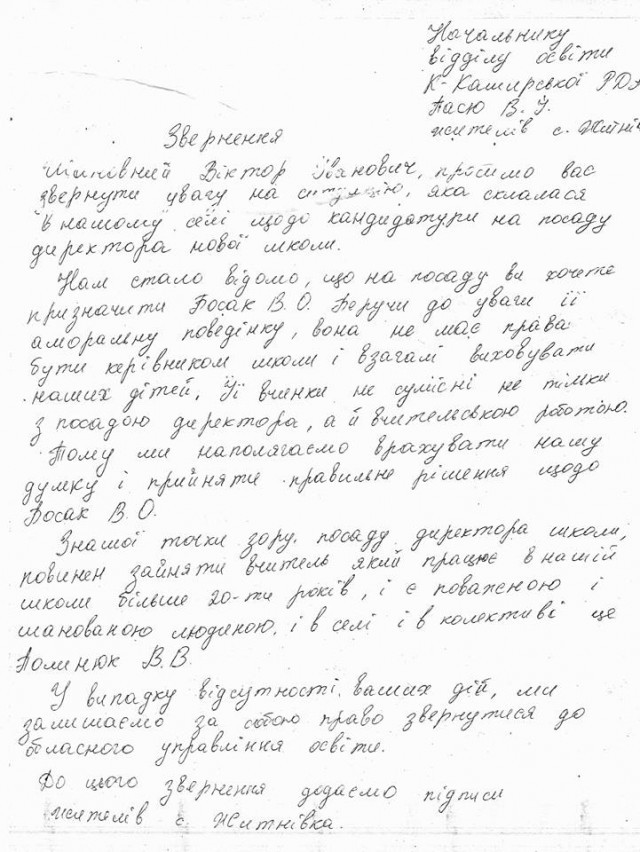 Начальнику
відділу освіти
К-Каширської РДА
Пасю В. І.
жителів с. Житнів
Звернення
Шановний Віктор Іванович, просимо вас
звернути увагу на ситуацію, яка склалася
в нашому селі щодо кандидатури на посаду
директора нової школи.
Нам стало відомо, що на посаду ви хочете
призначити Босак В. О. Беручи до уваги її
аморальну поведінку, вона не має права
бути керівником школи і взагалі виховувати
наших дітей. Її вчинки не сумісні не тільки
з посадою директора, а й вчительською роботою.
Тому ми наполягаємо врахувати нашу
думку і прийняти правильне рішення щодо
Босак В. О.
З нашої точки зору посаду директора школи,
повинен зайняти вчитель який працює в нашій
школі більше 20-ти років, і є поважною і
шанованою людиною, і в селі і в колективі це
Полинюк В. В.
У випадку відсутності ваших дій, ми
залишаємо за собою право звернутися до
обласного управління освіти.
До цього звернення додаємо підписи
жителів с. Житнівка.